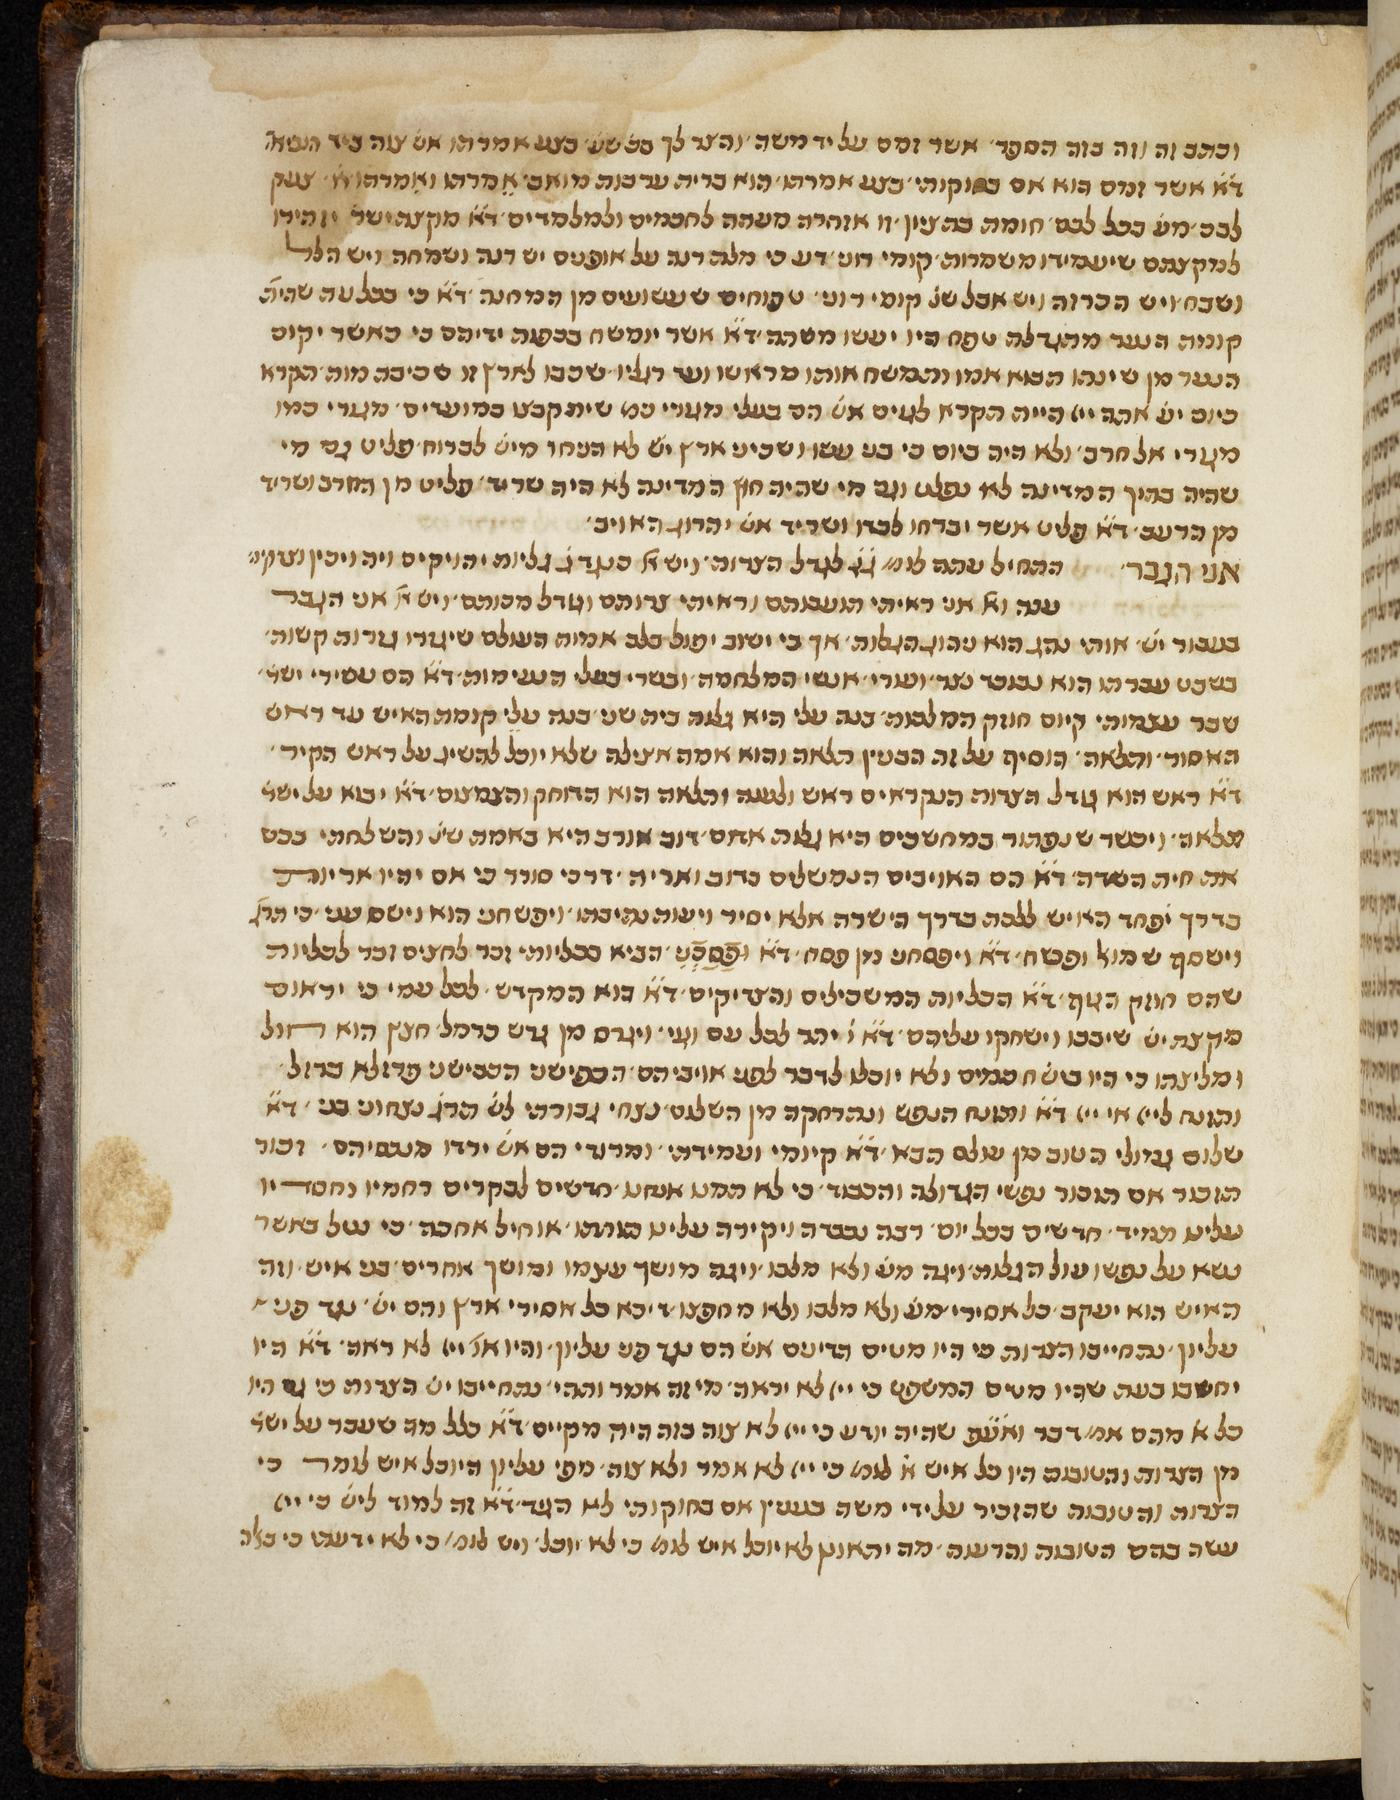 וכתב זה וזה בזה הספר אשר זמם על יד משה והצר לך בצע אמרתו אש׳ צוה ביד
ד״א אשר זמם הוא אם בחוקותי בצע אמרתו הוא ברית ערבות מואב אמרתו ואמרתו צעק
לבם מש׳ בכל לבם חומת בת ציון זו אזהרה משהה לחכמים ולמלמדים ד״א מקצת ישר׳ יזהירו
למקצתם שיעמידו משמרות קומי רוני דע כי מלת רנה על אופנים יש רנה ושמחה ויש הלל
ושבח ויש הכרזה ויש אבל שנ׳ קומי רוני טפוחים שעשועים מן המחנה ד״א כי בכל עת שהיה
קומת הנער מתגדלת טפח היו יעשו משתה ד״א אשר יומשח בכפות ידיהם כי כאשר יקום
הנער מן שינתו תבוא אמו ותמשח אותו מראשו ועד רגליו שכבו לארץ זו סביבה מות תקרא
כיום יש׳ אתה ייי היית תקרא לגוים אש׳ הם בעלי מגורי כמ׳ שיתקבצו במועדים מגורי כמו
מגורי אל חרב ולא היה ביום כי בני עשו ושכיני ארץ יש׳ לא הניחו מיש׳ לברוח פליט גם מי
שהיה בתוך המדינה לא נפלט וגם מי שהיה חוץ המדינה לא היה שריד פליט מן החרב ושריד
מן הרעב ד״א פליט אשר יברחו לבדו ושריד אש׳ יהרוג האויב
אני הגבר התחיל עתה לומ׳ גודל הצרות ויש א׳ כנגד ג׳ גליות יהויקים ויהויכין וצדקיה
ענה וא׳ אני ראיתי תועבותם וראיתי צרותם וגודל מכותם ויש א׳ אני הגבר
בעבור יש׳ אותי נהג הוא ניהוג הגלות אך בי ישוב יפול בלב אמות העולם שיגזרו גזרות קשות
בשבט עברתו הוא נבוכד נצר ועורי אנשי המלחמה ובשרי בעלי הנעימות ד״א הם עשירי ישר׳
שבר עצמותי קיום חוזק המלכות בנה עלי היא גלות בית שני בנה עלי קומת האיש עד ראש
האסור ותלאה הוסיף על זה הבנין תלאה והוא אמה אצילה שלא יוכל להשיג על ראש הקיר
ד״א ראש הוא גודל הצרות הנקראים ראש ולענה ותלאה הוא הדוחק והצמצום ד״א יבוא על ישר׳
תלאה ויכשר שנפתור במחשכים היא גלות אדום דוב אורב היא באמת שנ׳ והשלחתי בכם
את חית השדה ד״א הם האויבים הנמשלים כדוב ואריה דרכי סורר כי אם יהיו אריות
בדרך יפחד האיש ללכת בדרך הישרה אלא יסיר ויעוה נתיבתו ויפשחני הוא וישם עני כי הרג׳
וישסף שמואל ופשח ד״א ויפסחני מן פסח ד״א הביא בכליותי זכר לחצים זכר לכליות
שהם חוזק הגוף ד״א הכליות המשכילים והצדיקים ד״א בוא המקדש לכל עמי כי יראום
מקצת יש׳ שיבכו וישחקו עליהם ד״א י׳ יתר לכל עם ועני ויגרס מן גרש כרמל חצץ הוא חול
ומליצתו כי היו בשחתמים ולא יוכלו לדבר לפני אויביהם הכפישני הכבישני פרזלא ברזל
ותזנח ליי׳ אי ייי ד״א ותזנח הנפש ונתרחקה מן השלום נצחי גבורתי לש׳ הרג נצחוני בני ד״א
שלום גמולי הטוב מן עולם הבא ד״א קיומי ועמידתי ומרודי הם אש׳ ירדו מנכסיהם זכור
תזכור אם תזכור נפשי הגדולה והכבוד כי לא תמנו אנחנו חדשים לבקרים רחמיו וחסדיו
עלינו תמיד חדשים בכל יום רבה נכבדה ויקירה עלינו תורתו אוחיל אחכה כי נטל כאשר
נשא על נפשו עול הגלות ויגה מש׳ ולא מלבו ויגה מושך עצמו ומושך אחרים בני איש וזה
האיש הוא יעקב כל אסירי מש׳ ולא מלבו ולא מחפצו דיכא כל אסירי ארץ והם יש׳ נגד פני
עליון נתחייבו הצרות כי היו מטים הדינים אש׳ הם נגד פני עליון והיו או׳ ייי לא ראה ד״א היו
יחשבו בעת שהיו מטים המשפט כי ייי לא יראה מי זה אמר ותהי נתחייבו יש׳ הצרות כי גם היו
כל א׳ מהם או׳ דבר ואע״פ שהיה יודע כי ייי לא צוה בזה היה מקיים ד״א כלל מה שעבר על ישר׳
מן הצרות והטובות היו כל איש א׳ לומ׳ כי ייי לא אמר ולא צוה מפי עליון היוכל איש לומר כי
הצרות והטובות שהזכיר על ידי משה בענין אם בחוקותי לא הגיד ד״א זה למוד ליש׳ כי ייי
עשה בהם הטובות והרעות מה יתאונן לא יוכל איש לומ׳ כי לא יוכל ויש לומ׳ כי לא ידענו כי בלה